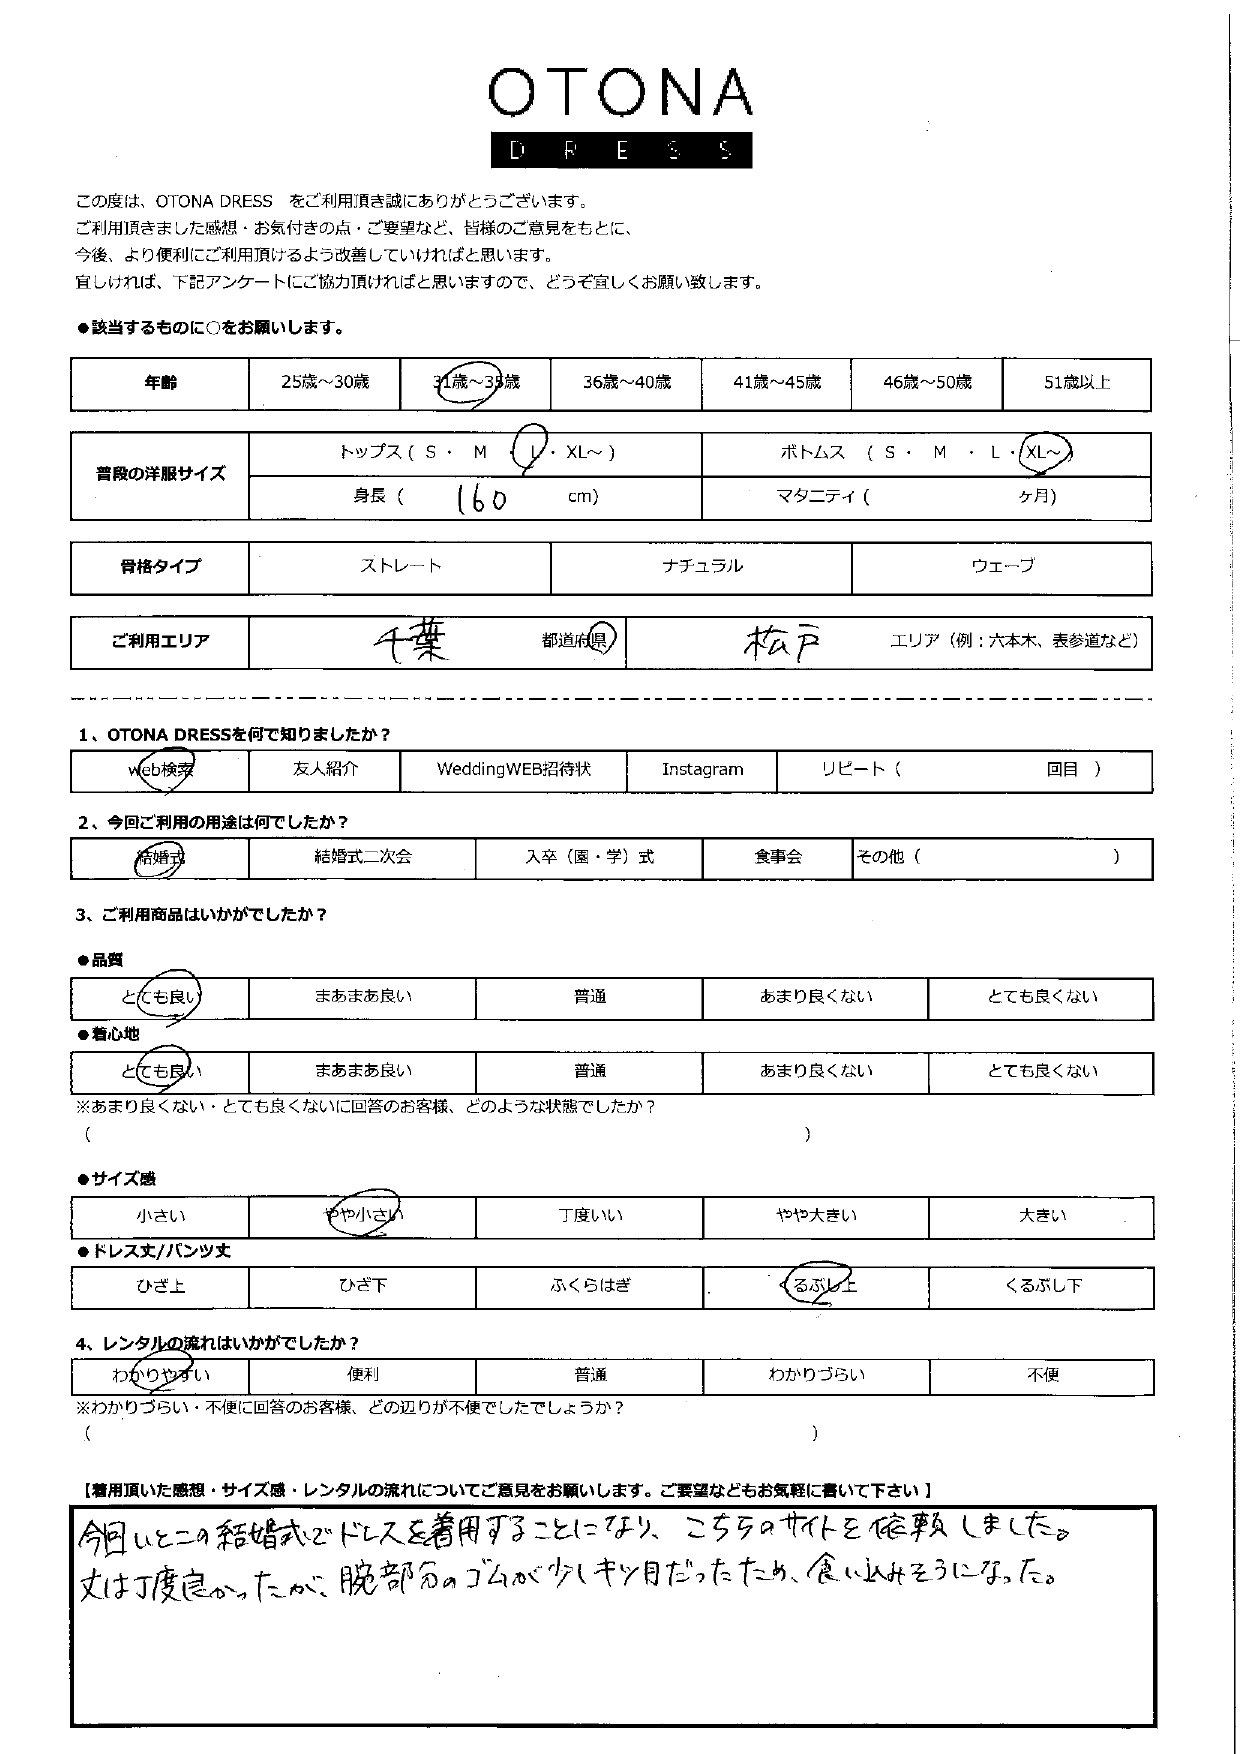 OTONA
DRESS
この度は、OTONA DRESS　をご利用頂き誠にありがとうございます。
ご利用頂きました感想・お気付きの点・ご要望など、皆様のご意見をもとに、
今後、より便利にご利用頂けるよう改善していければと思います。
宜しければ、下記アンケートにご協力頂ければと思いますので、どうぞ宜しくお願い致します。
●該当するものに○をお願いします。
年齢 25歳～30歳 31歳～35歳 36歳～40歳 41歳～45歳 46歳～50歳 51歳以上
普段の洋服サイズ トップス ( S ・ M ・ L ・ XL～ ) ボトムス ( S ・ M ・ L ・ XL～ )
身長 ( 160 cm) マタニティ ( ケ月)
骨格タイプ ストレート ナチュラル ウェーブ
ご利用エリア 千葉 都道府県 松戸 エリア（例：六本木、表参道など）
1、OTONA DRESSを何で知りましたか？
web検索 友人紹介 WeddingWEB招待状 Instagram リピート（ 回目 ）
2、今回ご利用の用途は何でしたか？
結婚式 結婚式二次会 入卒（園・学）式 食事会 その他（ ）
3、ご利用商品はいかがでしたか？
●品質
とても良い まあまあ良い 普通 あまり良くない とても良くない
●着心地
とても良い まあまあ良い 普通 あまり良くない とても良くない
※あまり良くない・とても良くないに回答のお客様、どのような状態でしたか？
（ ）
●サイズ感
小さい やや小さい 丁度いい やや大きい 大きい
●ドレス丈/パンツ丈
ひざ上 ひざ下 ふくらはぎ くるぶし上 くるぶし下
4、レンタルの流れはいかがでしたか？
わかりやすい 便利 普通 わかりづらい 不便
※わかりづらい・不便に回答のお客様、どの辺りが不便でしたでしょうか？
（ ）
【着用頂いた感想・サイズ感・レンタルの流れについてご意見をお願いします。ご要望などもお気軽に書いて下さい】
今回いとこの結婚式でドレスを着用することになり、こちらのサイトを依頼しました。
丈は丁度良かったが、腕部分のゴムが少しキツ目だったため、食い込みそうになった。